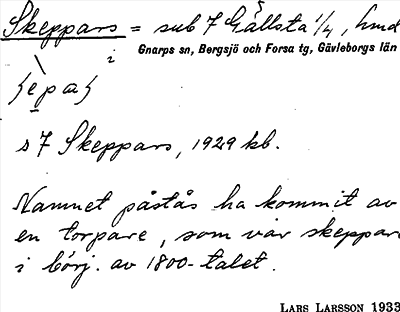 Skeppars = sub 7 Gällsta 1/4, hmd
i Gnarps sn, Bergsjö och Forsa tg, Gävleborgs län
s 7 Skeppars, 1929 kb.
Namnet påstås ha kommit av
en torpare, som var skeppar
i börj. av 1800-talet.
LARS LARSSON 1933